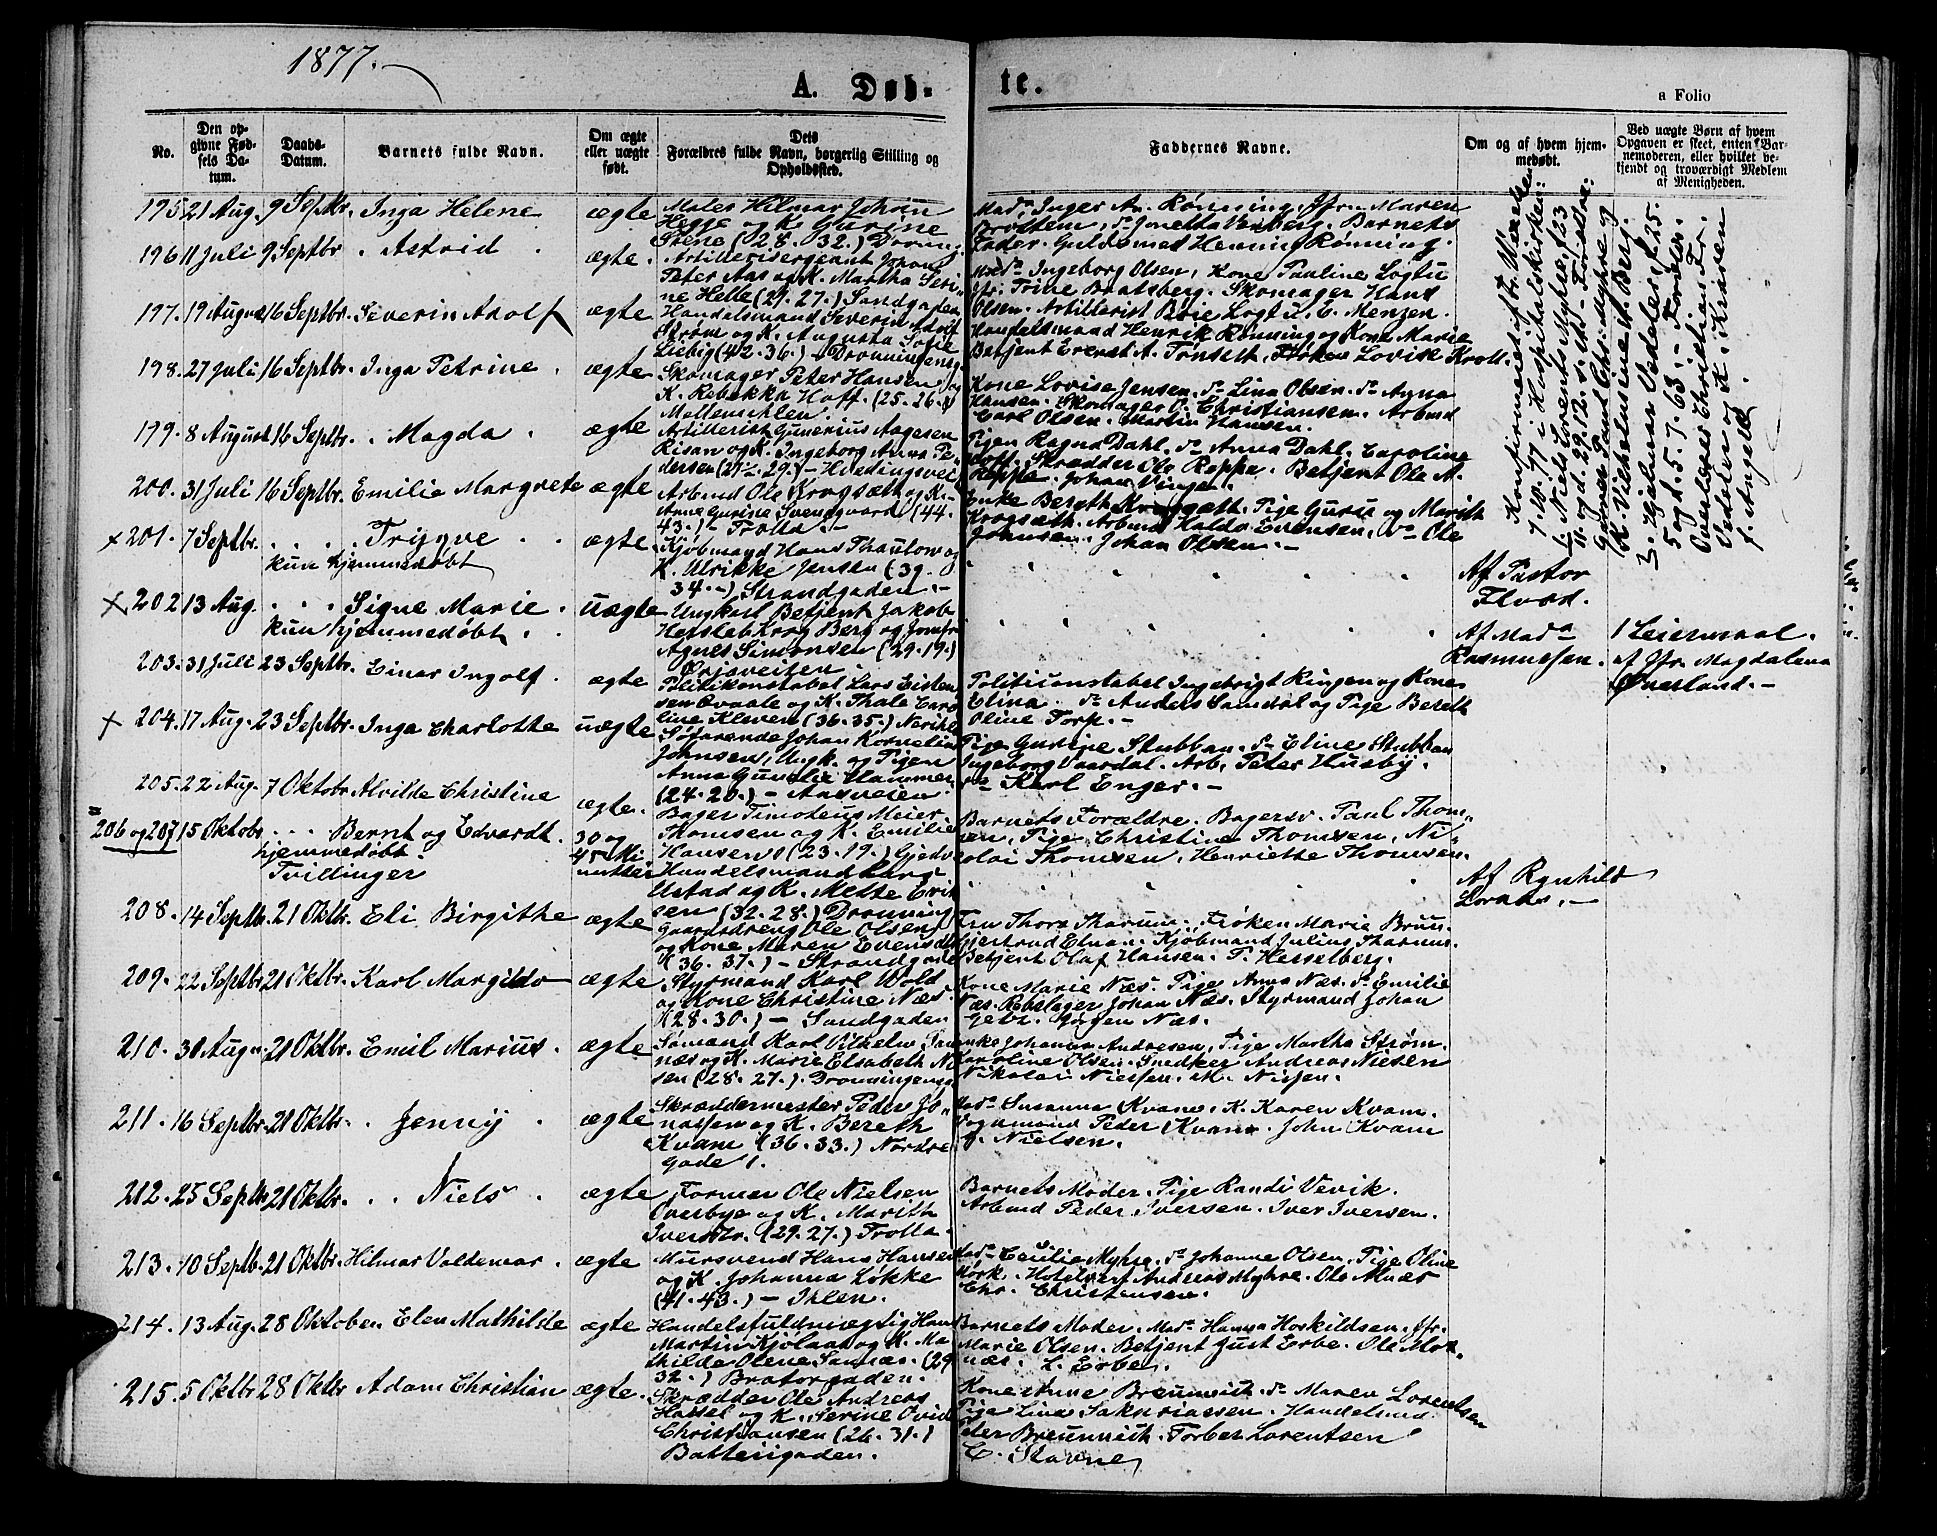 1877.
A. Døb-
te.
a Folio
No.
Den op-
givne Fød-
sels Da-
tum.
Daabs-
Datum.
Barnets fulde Navn.
Om ægte
eller uægte
født.
Dets
Forældres fulde Navn, borgerlig Stilling og
Opholdssted.
Faddernes Navne.
Om og af hvem hjem-
medøbt.
Ved uægte Børn af hvem
Opgaven er skeet, enten Bar-
nemoderen, eller hvilket be-
kjendt og troværdigt Medlem
af Menigheden.
195 21 Aug. 9 Septbr. Inga Helene ægte
Maler Hilmar Johan
Hegge og K. Gurine
Stene (28. 32.) Dronng
Mada Inger An. Rønning. Jfr. Maren
Brottem, da Jonetta Venberg. Barnets
Fader. Guldsmed Henning Rønning.
196 11 Juli 9 Septbr. Astrid. ægte.
Artillerisergeant Johan
Peter Aas og K. Martha Seri-
ne Helle (29. 27.) Sandgaden
Mada Ingeborg Olsen, Kone Pauline Løgtu
Jfr. Trine Bratsberg. Skomager Hans
Olsen. Artillerist Børe Logt L. E. Menzen.
197. 19 August 16 Septbr. Severin Adolf ægte
Handelsmand Severin Adolf
Strøm og K. Augusta Sofie
Liebig (42. 36.) - Dronningensg.
Handelsmand Henrik Rønning og Kone Marie
Betjent Ernst A. Tønseth. Frøken Lovise Kroll.
198. 27 Juli 16 Septbr. Inga Petrine. ægte
Skomager Peter Hansen og
K. Rebekka Hoff. (25. 26.)
Mellemihlen.
Kone Lovise Jensen. da Lina Olsen. da Agna
Hansen. Skomager O. Christiansen. Arbmd
Carl Olsen. Martin Hansen.
199. 8 August 16 Septbr. Magda. ægte
Artillerist Gunerius Aagesen
Risan og K. Ingeborg Anna Pe-
dersen (21½. 29.) - Hvedingsvei
Pigen Ragna Dahl. da Anna Dahl. Caroline
Hoff. Skrædder Ole Reppe. Betjent Ole A.
Reppe. Johan Vinjen.
200. 31 Juli 16 Septbr. Emilie Margrete ægte
Arbmd Ole Krogsæth og K.
Anne Gurine Svendgaard (44.
43.) - Trolla. -
Enke Bereth Krogsæth. Pige Guru og Marith
Krogsæth. Arbmd Haldo Evensen, da Ole
Johnsen. Johan Olsen. -
× 201. 7 Septbr. Trygve ægte
kun hjemmedøbt
Kjøbmand Hans Thaulow og
K. Ulrikke Jensen (39.
34.-) Strandgaden. -
Af Pastor
Flood.
× 202 13 Aug. Signe Marie. uægte
kun hjemmedøbt.
Ungkarl Betjent Jakob
Hersleb Krog Berg og Jomfru
Agnes Simonsen (29. 19.)
Erjsveiten.
Af Mada
Rasmussen.
1 Leiermaal.
af Jfr. Magdalena
Øverland. -
203. 31 Juli 23 Septbr. Einar Ingolf. ægte
Politikonstabel Lars Eisten
sen Kvaale og K. Thale Caro
line Kleven (36. 35.) Nerihl.
Politiconstabel Ingebrigt Ringen og Kone
Elina. da Anders Samdal og Pige Bereth
Oline Torp. -
× 204. 17 Aug. 23 Septbr. Inga Charlotte uægte
Søfarende Johan Kornelius
Johnsen, Ungk. og Pigen
Anna Gunelie Hammer
(24. 20.) - Aasveien.
Pige Gurine Stubban. da Eline Stubban
Ingeborg Vaardal. Arb. Peter Husby.
da Karl Enger. -
205. 22 Aug. 7 Oktobr. Alvilde Christine ægte.
Bager Timoteus Meier
Thomsen og K. Emilie
Hansen (23. 19.) Gjedv
Barnets Forældre. Bagersv. Paul Thom-
sen, Pige Christine Thomsen, Ni-
colai Thomsen, Henriette Thomsen.
206 og 207 15 Oktobr. Bernt og Edvardt. 30 og
hjemmedøbt. 45 Mi-
Tvillinger nutter
Handelsmand Lars
Ustad og K. Mette Erik
sen (32. 28.) Dronning
Af Rynhild
208. 14 Septb. 21 Oktbr. Eli Birgithe ægte
Gaardsdreng Ole Olsen
og Kone Maren Evensdtr
(36. 37.) - Strandgade
Fru Thora Tharum. Frøken Marie Bruu.
Gjertrud Elnan. Kjøbmand Julius Tharum.
Betjent Olaf Hansen. P. Hesselberg.
209. 22 Septbr. 21 Oktbr. Karl Margido ægte
Styrmand Karl Wold
og Kone Christine Næs.
(28. 30.) - Sandgaden
Kone Marie Næs. Pige Anna Næs. da Emilie
Næs. Rebslager Johan Næs. Styrmand Johan
Jørgen Næs.
210. 30 Aug. 21 Oktbr. Emil Marius. ægte
Sømand Karl Vilhelm
næs og K. Marie Elisabeth Ni
sen (28. 27.). Dronningensg
Enke Johanna Andresen, Pige Martha Strøm.
Karoline Olsen. Snedker Andreas Nissen
Nikolai Nissen. M. Nissen.
211. 16 Septbr. 21 Oktbr. Jenny ægte
Skræddermester Peder Jo-
nassen og K. Bereth
Kvam (36. 33.) Nordre
gade 1.
Mada Susanna Kvam. K. Karen Kvam.
Peder Kvam. John Kvam
Nielsen.
212. 25 Septbr 21 Oktbr. Niels. ægte
Former Ole Nielsen
Overbye og K. Marith
Iversdtr. (29. 27.) Trolla.
Barnets Moder. Pige Randi Vevik.
Arbmd Peder Iversen. Iver Iversen.
213. 10 Septb. 21 Oktbr. Hilmar Valdemar. ægte
Mursvend Hans Hansen
og K. Johanna Løkke
(41. 43.) - Ihlen.
Mada Cecilie Myhre. da Johanne Olsen. Pige Oline
Mørk. Hotelvert Andreas Myhre. Ole Moær
Chr. Christensen.
214. 13 Aug. 28 Oktober Elen Mathilde ægte
Handelsfuldmægtig Hans
Martin Kjølaas og K. Ma
thilde Olene Samnæs. (29.
32.) Bratørgaden.
Barnets Moder. Mada Hanna Hoskildsen. Jfr.
Marie Olsen. Betjent Just Erbe. Ole Mok-
næs. L. Erbe.
215. 5 Oktbr 28 Oktbr Adam Christian ægte.
Skrædder Ole Andreas
Hassel og K. Serine Ovidi
Christiansen (26. 31.)
Batterigaden.
Kone Anne Breunvich. da Maren Lorentsen
Pige Lina Sakariassen. Handelsmd
Peter Breunvich. Torber Lorentsen
C. Stavne
Konfirmeret af Str.
7. 10. 77 i Hospitalskirken:
1. Niels Lorents Myhre, f. 23
11. ogd. 29. 12. s. A. - Forældre:
Gjørner Paul Chr. Myhre og
K. Vilhelmine A. Berg.
2. Hjelmar Vedeler, f. 25.
5 og d. 5. 7. 63. - Forældre:
Overlærer Christian Fr.
Vedeler og K. Karen
f. Angell.